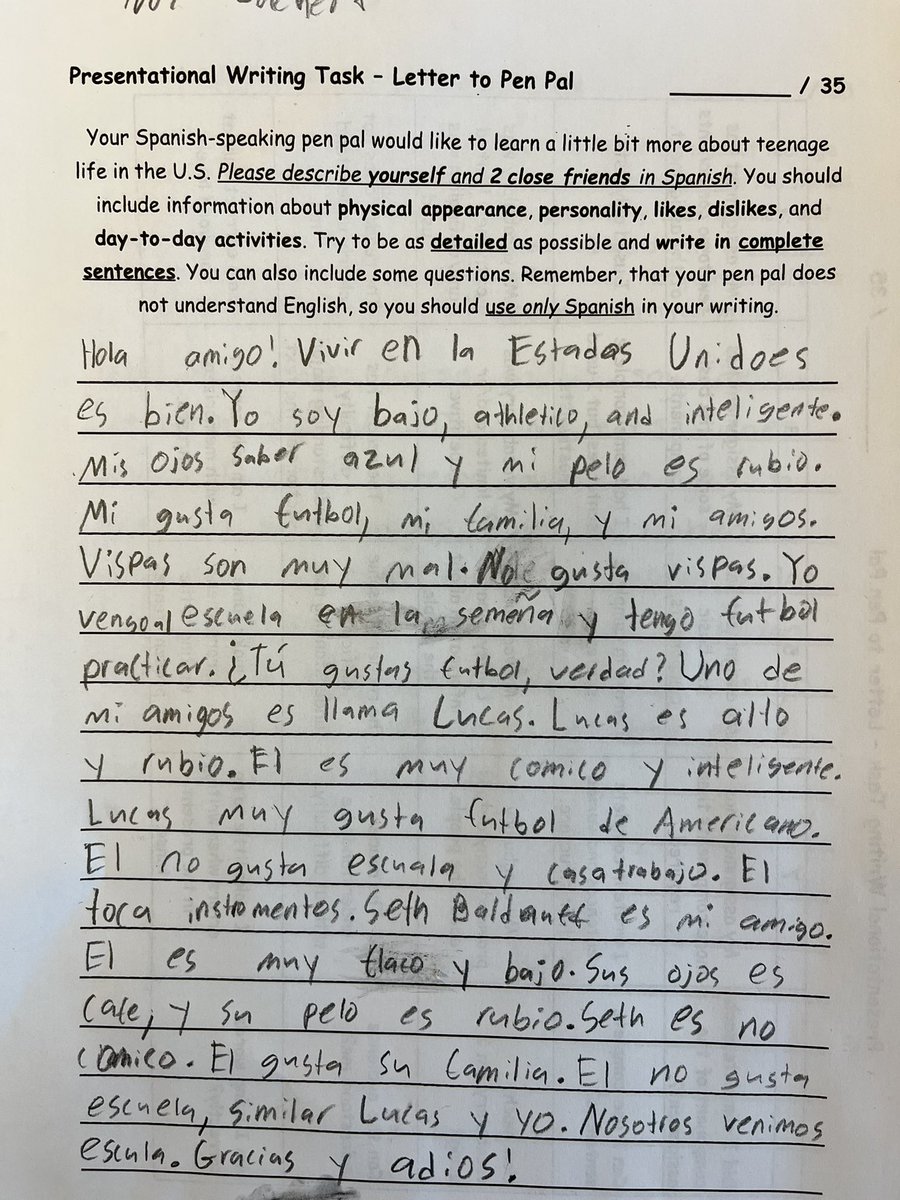 Presentational Writing Task – Letter to Pen Pal
/ 35
Your Spanish-speaking pen pal would like to learn a little bit more about teenage
life in the U.S. Please describe yourself and 2 close friends in Spanish. You should
include information about physical appearance, personality, likes, dislikes, and
day-to-day activities. Try to be as detailed as possible and write in complete
sentences. You can also include some questions. Remember, that your pen pal does
not understand English, so you should use only Spanish in your writing.
Hola amigo! Vivir en la Estadas Unidoes
es bien. Yo soy bajo, athletico, and inteligente.
Mis ojos saber azul y mi pelo es rubio.
Mi gusta futbol, mi familia, y mi amigos.
Vispas son muy mal. No gusta vispas. Yo
vengo al escuela en la semeña y tengo futbol
practicar. ¿Tú gustas futbol, verdad? Uno de
mi amigos es llama Lucas. Lucas es alto
y rubio. El es muy comico y inteligente.
Lucas muy gusta futbol de Americano.
El no gusta escuala y casa trabajo. El
toca instromentos. Seth es mi amigo.
El es muy flaco y bajo. Sus ojos es
cafe, y su pelo es rubio. Seth es no
comico. El gusta su familia. El no gusta
escuela, similar Lucas y yo. Nosotros venimos
escula. Gracias y adios!